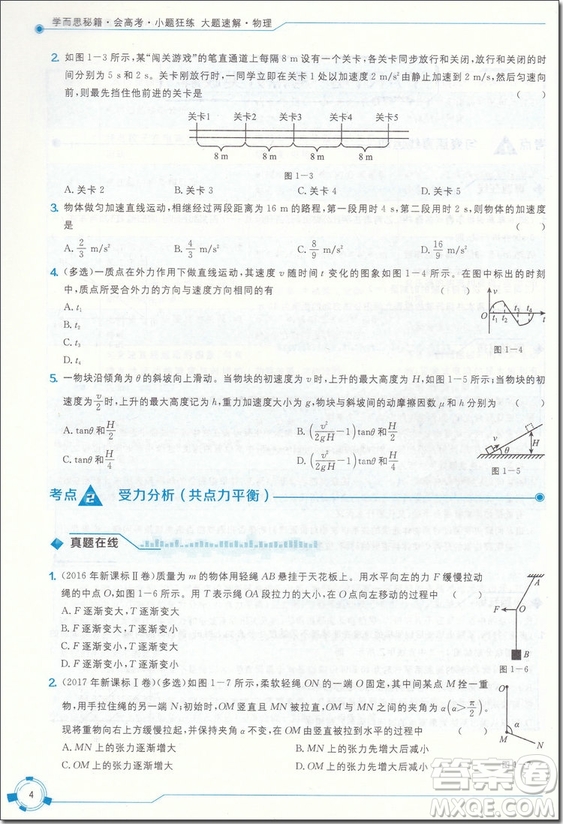 学而思秘籍·会高考·小题狂练 大题速解·物理
2. 如图 1-3 所示,某“闯关游戏”的笔直通道上每隔 8 m 设有一个关卡,各关卡同步放行和关闭,放行和关闭的时
间分别为 5 s 和 2 s。关卡刚放行时,一同学立即在关卡 1 处以加速度 2 m/s² 由静止加速到 2 m/s,然后匀速向
前,则最先挡住他前进的关卡是 ( )
关卡1 关卡2 关卡3 关卡4 关卡5
8 m 8 m 8 m 8 m
图 1-3
A. 关卡 2 B. 关卡 3 C. 关卡 4 D. 关卡 5
3. 物体做匀加速直线运动,相继经过两段距离为 16 m 的路程,第一段用时 4 s,第二段用时 2 s,则物体的加速度
是 ( )
A. 2/3 m/s² B. 4/3 m/s² C. 8/9 m/s² D. 16/9 m/s²
4. (多选)一质点在外力作用下做直线运动,其速度 v 随时间 t 变化的图象如图 1-4 所示。在图中标出的时刻
中,质点所受合外力的方向与速度方向相同的有 ( )
A. t₁
B. t₂
C. t₃
D. t₄
v
O t₁ t₂ t₃ t₄ t
图 1-4
5. 一物块沿倾角为 θ 的斜坡向上滑动。当物块的初速度为 v 时,上升的最大高度为 H,如图 1-5 所示;当物块的初
速度为 v/2 时,上升的最大高度记为 h,重力加速度大小为 g,物块与斜坡间的动摩擦因数 μ 和 h 分别为 ( )
A. tanθ 和 H/2 B. (v²/2gH-1)tanθ 和 H/2
C. tanθ 和 H/4 D. (v²/2gH-1)tanθ 和 H/4
v θ H
图 1-5
考点 2 受力分析(共点力平衡)
真题在线
1. (2016 年新课标Ⅱ卷)质量为 m 的物体用轻绳 AB 悬挂于天花板上。用水平向左的力 F 缓慢拉动
绳的中点 O,如图 1-6 所示。用 T 表示绳 OA 段拉力的大小,在 O 点向左移动的过程中 ( )
A. F 逐渐变大,T 逐渐变大
B. F 逐渐变大,T 逐渐变小
C. F 逐渐变小,T 逐渐变大
D. F 逐渐变小,T 逐渐变小
A
F O
B
图 1-6
2. (2017 年新课标Ⅰ卷)(多选)如图 1-7 所示,柔软轻绳 ON 的一端 O 固定,其中间某点 M 拴一重
物,用手拉住绳的另一端 N;初始时,OM 竖直且 MN 被拉直,OM 与 MN 之间的夹角为 α(α>π/2)。
现将重物向右上方缓慢拉起,并保持夹角 α 不变。在 OM 由竖直被拉到水平的过程中 ( )
A. MN 上的张力逐渐增大 B. MN 上的张力先增大后减小
C. OM 上的张力逐渐增大 D. OM 上的张力先增大后减小
O
α
M N
图 1-7
4
答案圈
MXQE.COM